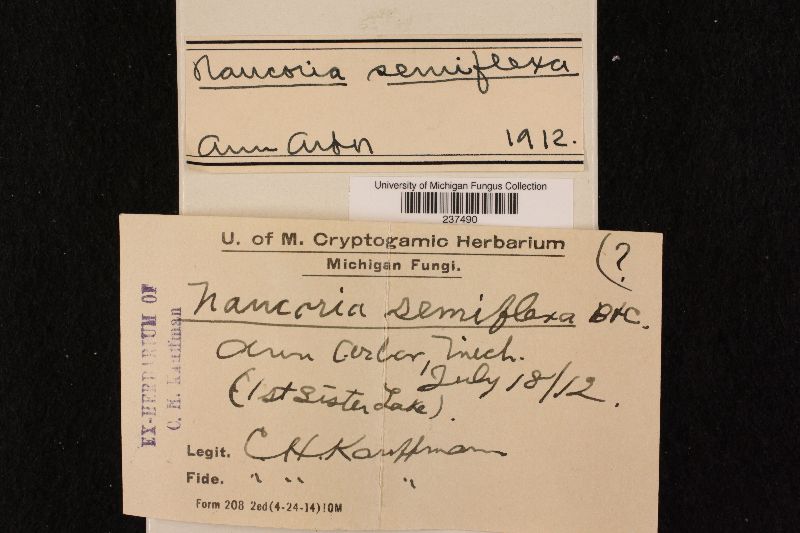 Naucoria semiflexa
Ann Arbor 1912.
University of Michigan Fungus Collection
237490
U. of M. Cryptogamic Herbarium
(?
Michigan Fungi.
Naucoria semiflexa B+C.
Ann Arbor, Mich.
July 18/12.
(1st Sister Lake).
Legit. C H. Kauffman
Fide. " " "
Form 208 2ed(4-24-14)10M
EX-HERBARIUM OF
C. H. Kauffman